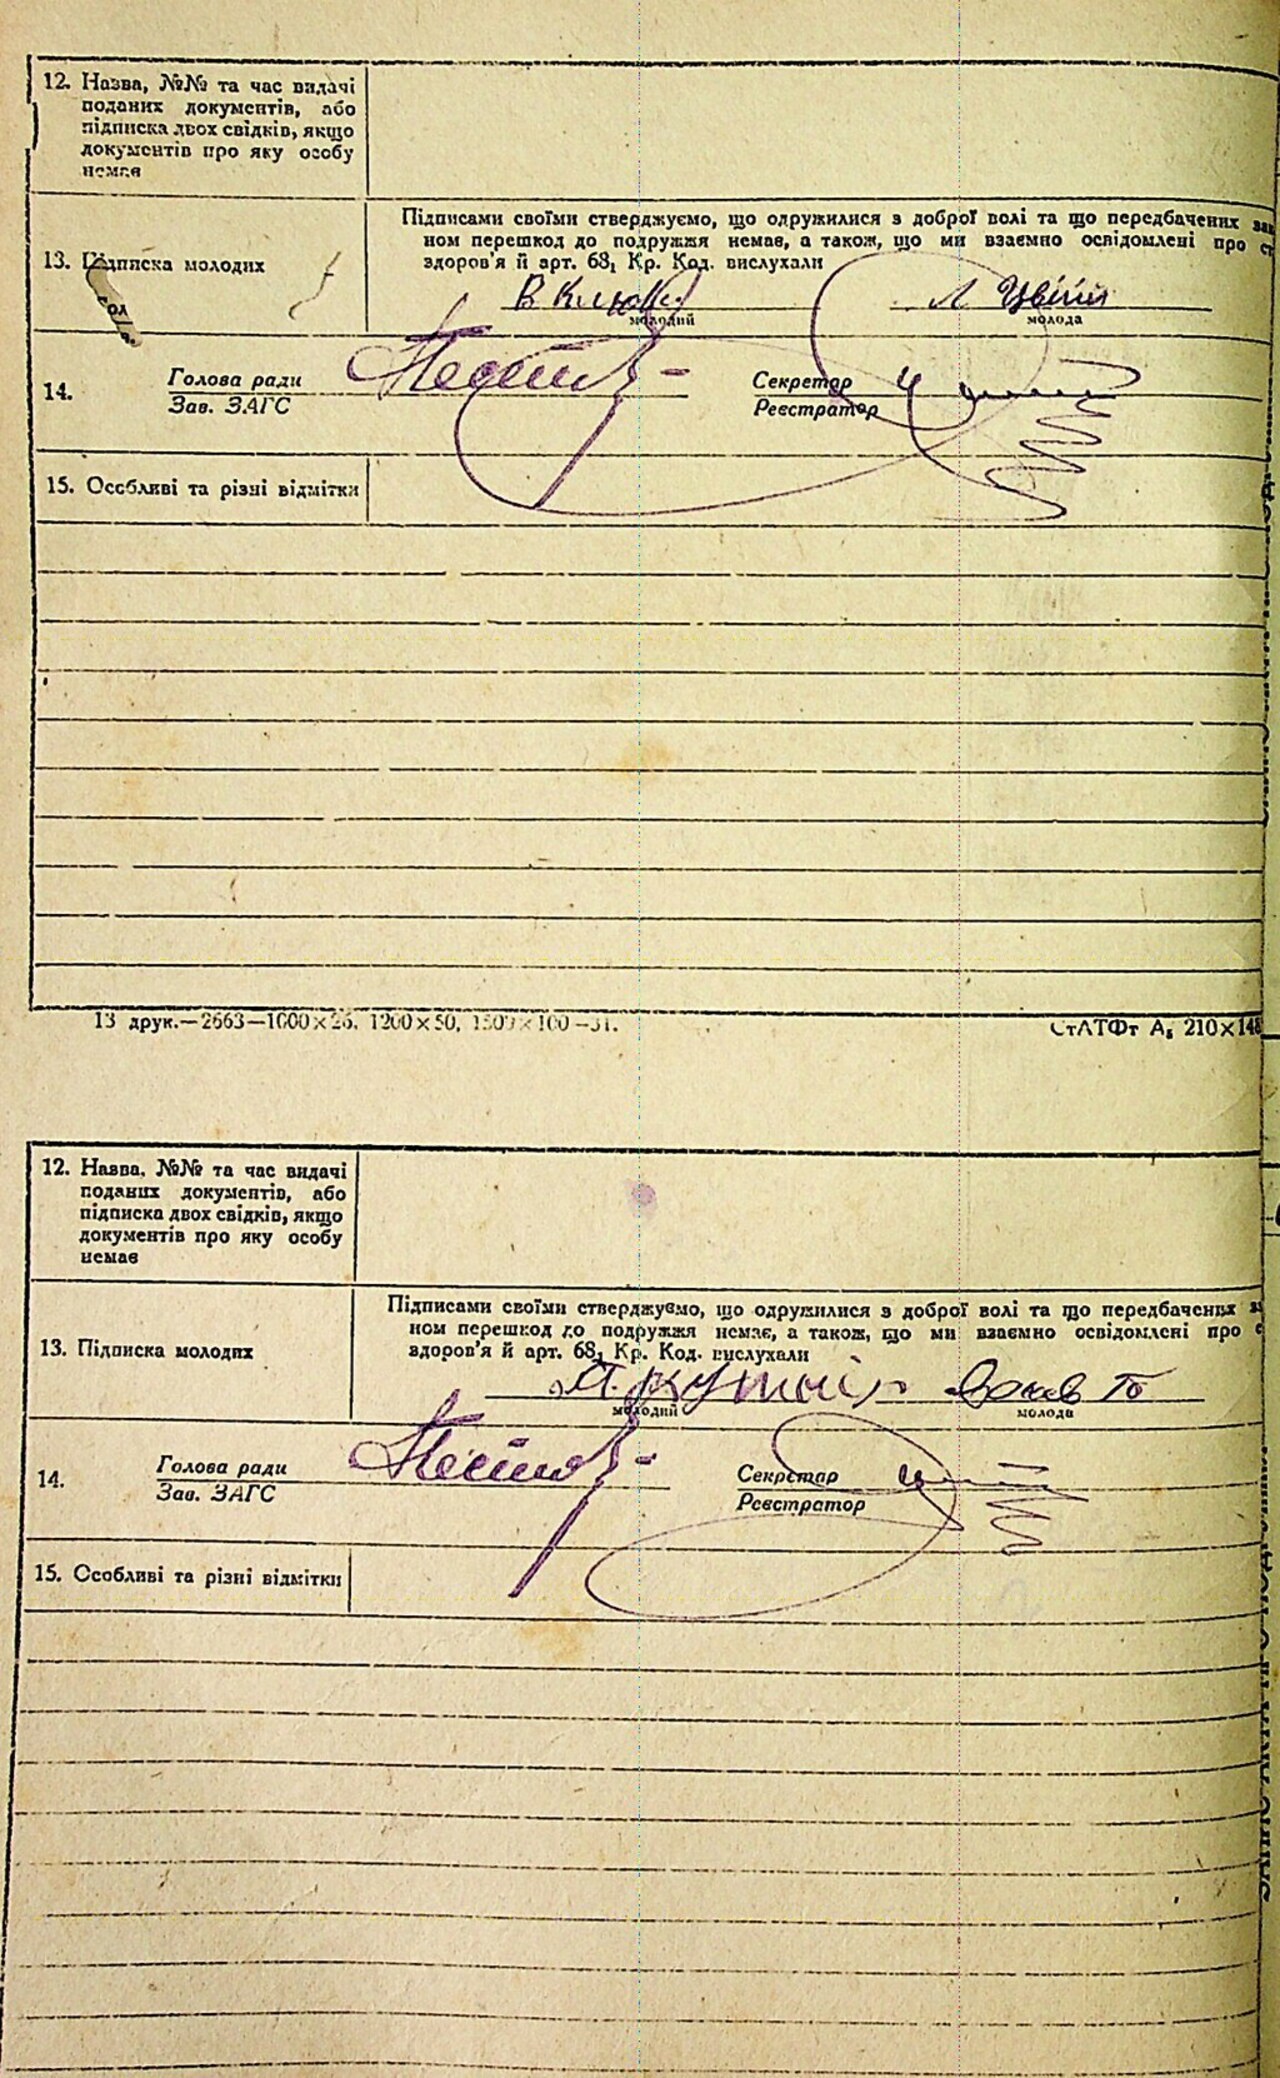 12. Назва, №№ та час видачі
поданих документів, або
підписка двох свідків, якщо
документів про яку особу
немає
13. Підписка молодих
Підписами своїми стверджуємо, що одружилися з доброї волі та що передбачених
ном перешкод до подружжя немає, а також, що ми взаємно освідомлені про
здоров'я й арт. 68₁ Кр. Код. вислухали
молодий
молода
14.
Голова ради
Зав. ЗАГС
Секретар
Реєстратор
15. Особливі та різні відмітки
13 друк.—2663—1000×26. 1200×50, 1500×100—31.
СтЛТФт А₅ 210×148
12. Назва, №№ та час видачі
поданих документів, або
підписка двох свідків, якщо
документів про яку особу
немає
13. Підписка молодих
Підписами своїми стверджуємо, що одружилися з доброї волі та що передбачених
ном перешкод до подружжя немає, а також, що ми взаємно освідомлені про
здоров'я й арт. 68₁ Кр. Код. вислухали
молодий
молода
14.
Голова ради
Зав. ЗАГС
Секретар
Реєстратор
15. Особливі та різні відмітки